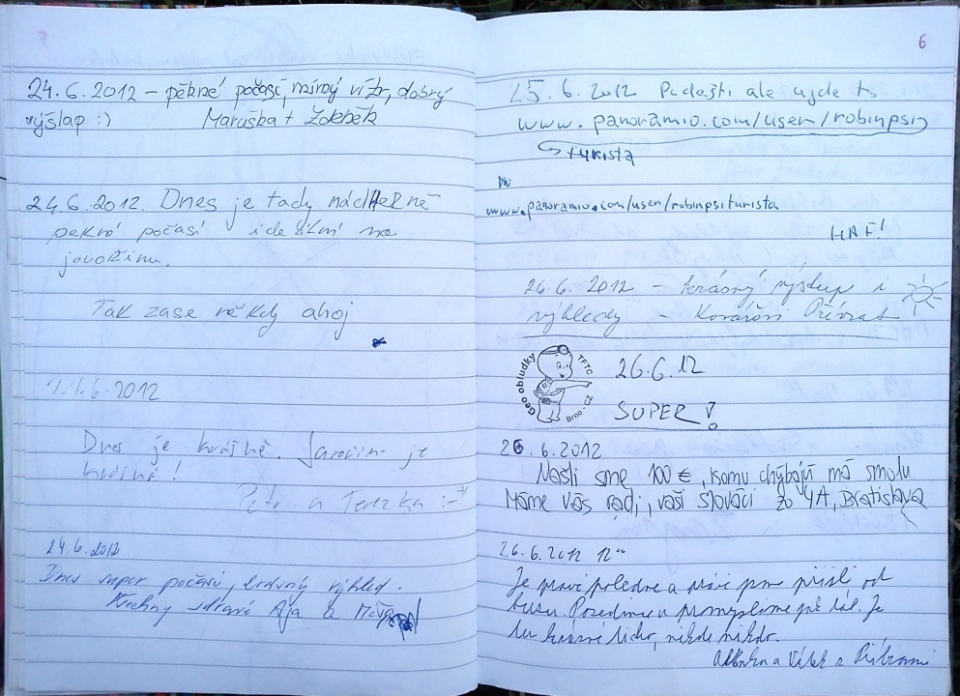 24.6.2012 – pěkné počasí, mírný vítr, dobrý
výšlap :) Maruška + Zdeněk
24.6.2012. Dnes je tady nádHERně
pekné počasí ideální na
javořinu.
Tak zase někdy ahoj
24.6.2012
Dnes je krásně. Javořina je
krásná!
Petr a Terezka :-)
24.6.2012
Dnes super počasí, krásný výhled.
Všechny zdraví Ája a
6
25.6.2012 ale ujde to
www.panoramio.com/user/robinpsi
turista
www.panoramio.com/user/robinpsiturista
HAF!
26.6.2012 – krásný výstup i
výhledy – Kovářovi
Geo obludky TFTC Brno - CZ
26.6.12
SUPER!
26.6.2012
Našli sme 100 €, komu chýbajú má smolu
Máme Vás radi, vaši Slováci zo 4A, Bratislava
26.6.2012 12⁰⁰
Je pravé poledne a právě jsme přišli od
busu. Posedíme a promyslíme jak dál. Je
tu krásné ticho, nikde nikdo.
a Vítek z Příbrami